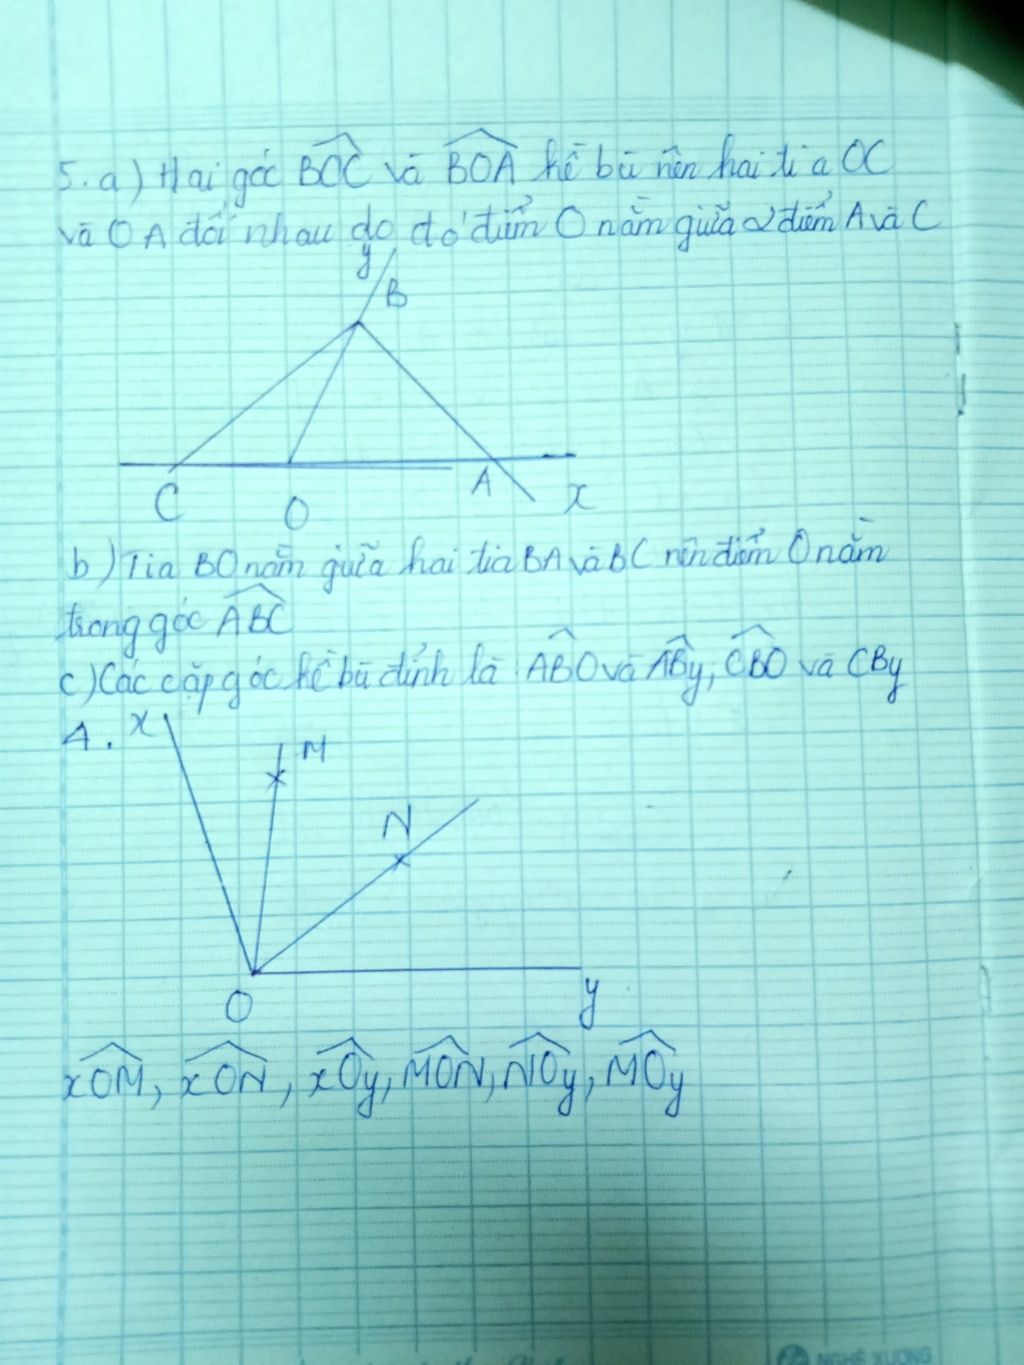 5. a) Hai góc BOC và BOA kề bù nên hai tia OC
và OA đối nhau do đó điểm O nằm giữa 2 điểm A và C
y
B
C
O
A
x
b) Tia BO nằm giữa hai tia BA và BC nên điểm O nằm
trong góc ABC
c) Các cặp góc kề bù đỉnh là ABO và ABy, CBO và CBy
4.
x
M
N
O
y
xOM, xON, xOy, MON, NOy, MOy
NGHỆ XƯƠNG